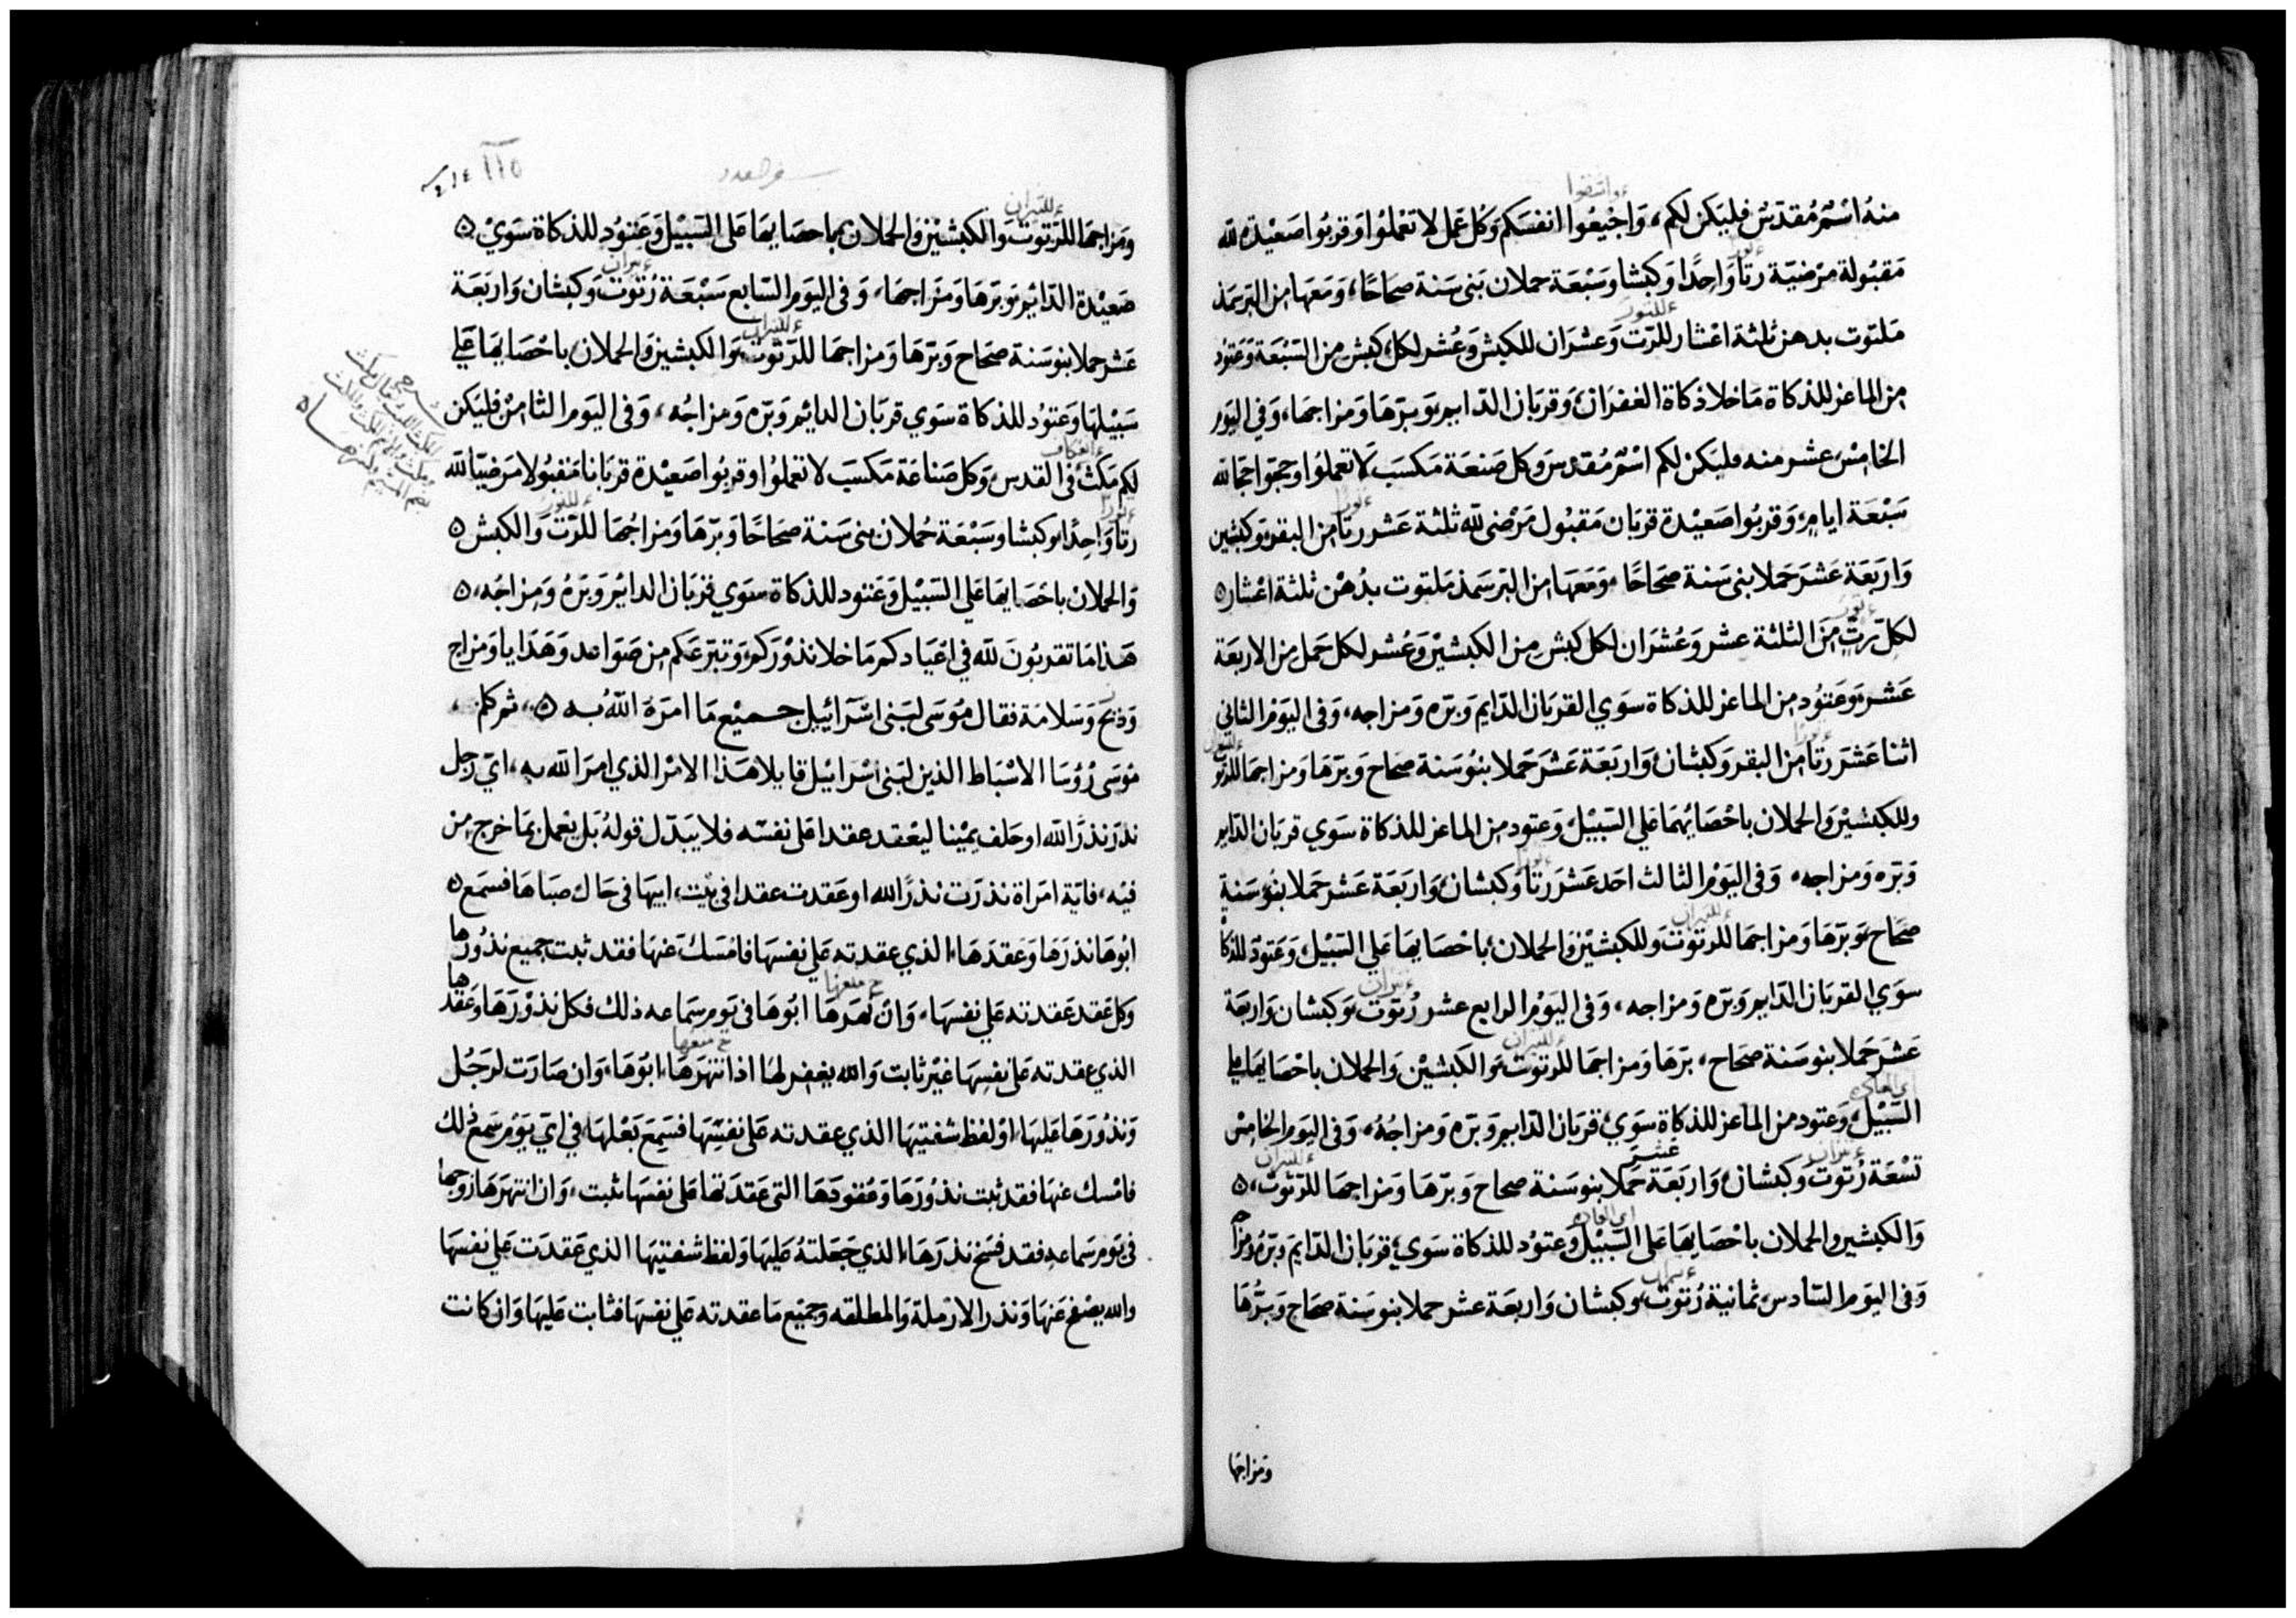 واتضعوا
منهُ اسْمٌ مُقدّسٌ فليَكن لكم، وَاجيْعُوا انفسَكم وَكُل عَمل لا تعْملُوا وَقربُوا صَعيْدة لله
ثور
مَقبُولة مرْضيّة رتا وَاحِدًا وَكبشا وسَبْعَة حملان بَنى سَنة صحَاحًا، وَمعَها من البرّ سَمَذ
للثور
مَلتوت بدهن ثلثة اعْشار للرّت وَعشرَان للكبش وَعُشر لكل كبش من السَبْعَة وَعَتوُد
من الماعز للذكاة مَا خلا ذكاة الغفرَان، وَقربَان الدّايم وَبرّهَا وَمزاجهَا، وَفى اليَوم
الخامِسْ عشر منه فليَكن لكم اسْمٌ مُقدسَ وَكل صَنعَة مَكسَب لا تعملوُا وحجّوا حجّا لله
ثورا
سَبْعَة ايامٍ، وَقربُوا صَعيْدة قربَان مَقبُول مَرْضى لله ثلثة عَشر رتا من البقر وَكبشين
وَاربَعَة عَشرَ حَملا بنى سَنة صحَاحًا، وَمَعَها من البرّ سَمَذ مَلتوت بدُهْن ثلثة اعْشار ه
ثور
لكلّ رتٍّ مِنَ الثلثة عشر وَعُشرَان لكل كبش من الكبشيْن وَعُشر لكل حَمل من الاربعَة
عَشر، وَعَتوُد من الماعز للذكاة سَوَي القربَان الدّايم وَبرّه وَمزاجه، وَفى اليَوْم الثاني
ثورا للثيران
اثنا عَشرَ رتا من البقر وَكبشان وَاربَعَة عَشرَ حَملا بنوُ سَنة صحَاح وَبرّهَا وَمزاجهَا للرتوت
وللكبشيْن وَالحملان باحْصَايُهمَا عَلى السَّبيْل، وَعتود من الماعز للذكاة سَوي قربَان الدّايم
ثورا
وَبرّه وَمزاجه، وَفى اليَوْم الثالث احَد عَشرَ رتا وَكبشان، وَاربَعَة عَشر حملا بنوُ سَنة
للثيران
صحَاح، وَبرّهَا وَمزاجهَا للرتوت وللكبشيْن وَالحملان، باحْصَايهَا عَلي السَّبيْل، وَعَتوُد للذكاة
ثيران
سوَي القربَان الدّايم وَبرّه وَمزاجه، وَفى اليَوْم الرابع عشر رُتوت، وَكبشان وَاربعَة
للثيران
عَشرَ حَملا بنو سَنة صحَاح، برّهَا وَمزاجهَا للرتوت، وَالكبشيْن وَالحملان باحْصَايهَا علي
اي العاده
السَّبيْل، وَعتود من الماعز للذكاة سَوَي، قربَان الدّايم وَبرّه وَمزاجُهُ، وَفى اليَوم الخامِسْ
ثيران عشر للثيران
تسْعَة رُتوت وَكبشان، وَاربَعَة حَملا بنو سَنة صحاح وَبرّهَا وَمزاجهَا للرّتوت، ه
اي العاده
وَالكبشين والحملان باحْصَايهَا عَلى السَّبيْل وَعتوُد للذكاة سَوي، قربَان الدّايم وَبرّه ومزاجه
ثيران
وَفى اليوَم السَّادس، ثمانية رُتوت، وَكبشان وَاربعَة عشر حملا بنو سَنة صحَاح وَبرُّهَا
ومزاجها
سفر العدد
١١٥
للثيران
وَمزاجهَا للرّتوت وَالكبشيْن وَالحملان بَاحصَايهَا عَلى السَّبيْل وَعَتوُد للذكاة سَوَيْ ه
ثيران
صَعيْدة الدّايم وَبرّهَا وَمزَاجهَا، وَفى اليَوم السّابع سَبْعَة رُتوت وَكبشان وَاربَعَة
للثيران
عَشر حملا بنو سَنة صحَاح وَبرّهَا وَمزاجهَا للرّتوت، وَالكبشين وَالحملان باحْصَايهَا عَلي
سَبيْلهَا وَعتوُد للذكاة سَوَي قربَان الدايم وَبرّه وَمزاجُه، وَفى اليَوم الثامِنْ فليَكن
العكاف
لكم مَكث فى القدس وَكل صَناعَة مَكسَب لا تعملوُا وقربُوا صَعيْدة قربَانا مَقبُولا مَرضيّا لله
ثورا للثور
رتا وَاحِدًا وكبشا وسَبْعَة حُملان بنى سَنة صحَاحًا وَبرّهَا وَمزاجُهَا للرّت وَالكبش ه
وَالحملان باحْصَايهَا عَلى السَّبيْل وَعَتود للذكاة سوَي قربَان الدايم وَبرّهُ وَمزاجُه، ه
هَذا مَا تقربُونَ لله في اعْيَادكم مَا خلا نذوْركم، وَتبرّعَكم من صَوَاعد وَهَدَايا وَمزاج
وَذبَح وَسَلامَة فقال مُوسَى لبَنى اسْرَائيل جميْع مَا امرَهُ اللهُ به ه، ثم كلم،
مُوسَى رُؤسَا الاسْبَاط الذين لبَنى اسْرَائيل قايلا هَذا الامْر الذي امرَ الله به، ايّ رَجل
نذَر نذرًا لله او حَلف يَميْنا ليَعْقد عقدا عَلى نفسَه فلا يبَدّل قولهُ بَل يعْمل بمَا خرج من
فيْه، فايّة امرَاة نذرَت نذرًا لله او عَقدت عقدا فى بيْت، ابيهَا فى حَال صبَاهَا فسمَع ه
ابُوهَا نذرَهَا وَعَقدَهَا الذي عقدته عَلي نفسَهَا فامْسَكَ عَنهَا فقد ثبت جميع نذوُرهَا
منعها
وَكل عَقد عَقدته عَلي نفسهَا، وَان نهَرهَا ابُوهَا فى يَوم سَمَاعه ذلك فكل نذوْرَهَا وَعَقدهَا
منعها
الذي عقدته عَلى نفسِهَا غيْر ثابت وَالله يغفر لهَا اذ انتهرَهَا ابُوهَا، وَان صَارَت لرَجُل
وَنذوُرَهَا عَليهَا، اوْ لفظ شفتيْهَا الذي عقدته عَلى نفسِّهَا فسَمِعَ بَعْلهَا في ايّ يَوْم سَمعَ ذلك
فامْسك عنهَا فقد ثبت نذوُرَهَا وَعُقودَهَا التى عَقدَتهَا عَلى نفسَهَا ثبت، وَان انتهرَهَا زوجها
فى يَوم سَماعهِ فقد فسَخ نذرَهَا، الذي جَعَلتهُ عَليهَا وَلفظ شفتيْهَا الذي عَقدَت عَلي نفسَهَا
والله يصْفح عَنهَا وَنذر الارْملة وَالمطلقه وجميْع مَا عقدته عَلي نفسَهَا فثابت عَليهَا وَان كانت